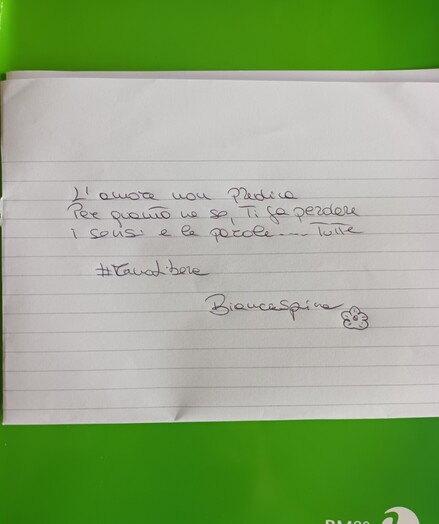 L'amore non predica
Per quanto ne so, Ti fa perdere
i sensi e le parole.... Tutte
BiancaSpina